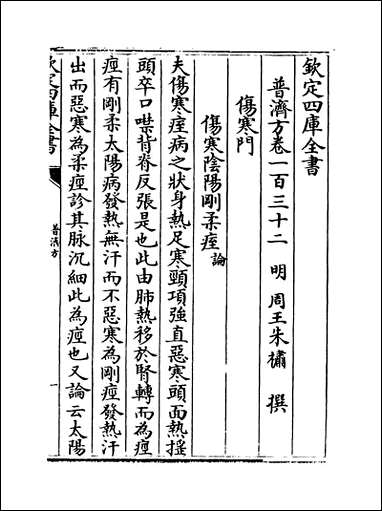 欽定四庫全書
普濟方卷一百三十二　明　周王朱橚　撰
傷寒門
傷寒陰陽剛柔痓論
夫傷寒痓病之狀身熱足寒頸項強直惡寒頭面熱揺
頭卒口噤背脊反張是也此由肺熱移於腎轉而為痓
痓有剛柔太陽病發熱無汗而不惡寒為剛痓發熱汗
出而惡寒為柔痓診其脉沉細此為痓也又論云太陽
欽定四庫全書
普濟方
一